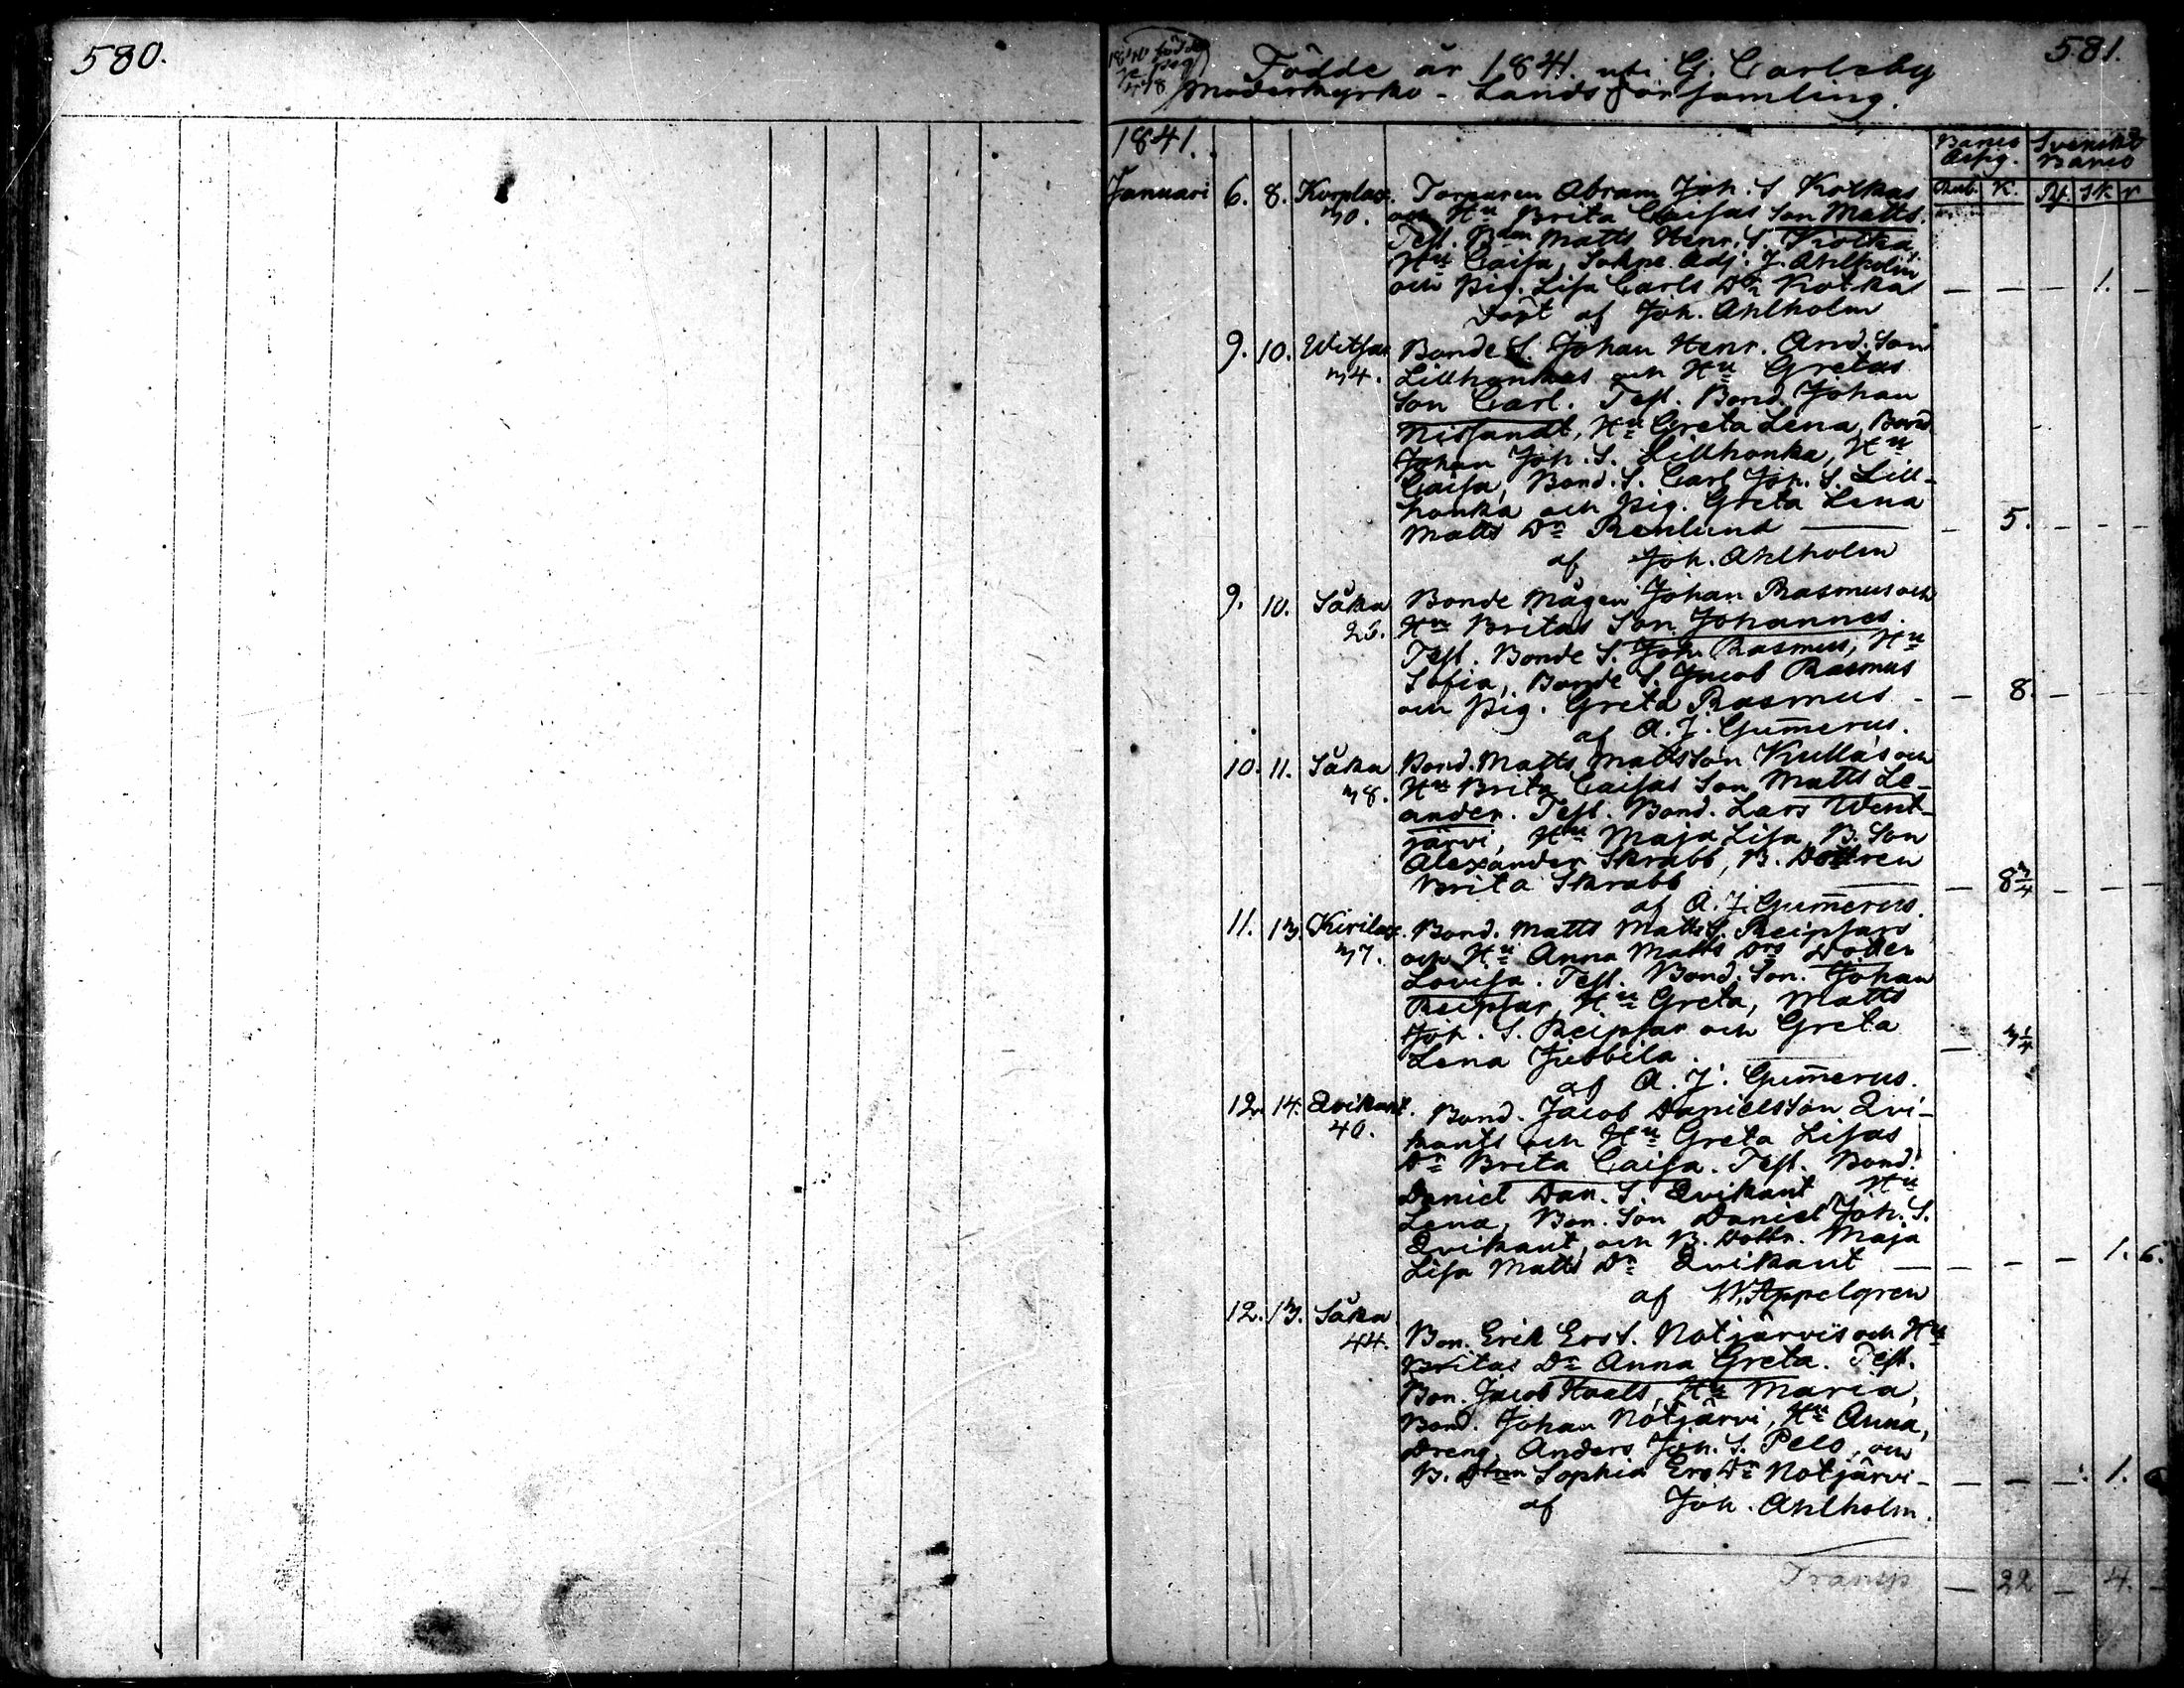 580.
581.
1840 födde
p. pag
Födde år 1841. uti G. Carleby
moderkyrko - Landsförsamling.
1841.
Banco Assig. Svenskt Banco
Rub. K. Rf. Sk. r
Januari 6. 8. Korplax. Torparen Abram Joh. S Kotkas
30. och Hu Brita Caisas Son Matts.
Test. Bden Matts Henr. S. Kotka,
Hu Caisa, Sokne Adj. J. Ahlholm
och Pig. Lisa Carls Dr Kotka — — — 1. —
Döpt af Joh. Ahlholm
9. 10. Witsar Bonde S. Johan Henr. And. Son
34. Lillhonkas och Hu Gretas
Son Carl. Test. Bond. Johan
Nissandt, Hu Greta Lena, Bond
Johan Joh. S. Lillhonka, Hu
Caisa, Bond. S. Carl Joh. S. Lill-
honka och Pig. Greta Lena
Matts Dr Renlund — — 5. — — —
af Joh. Ahlholm
9. 10. Såka Bonde Mågen Johan Rasmus och
26. Hu Britas Son Johannes.
Test. Bonde S. Joh. Rasmus, Hu
Sofia, Bonde S. Jacob Rasmus
och Pig. Greta Rasmus — — 8. — — —
af A. J. Gum̄erus.
10. 11. Såka Bond. Matts Matts Son Kullas och
38. Hu Brita Caisas Son Matts Le-
ander. Test. Bond. Lars Went-
järvi, Hu Maja Lisa, B. Son
Alexander Skrabb, B. Dottren
Brita Skrabb — — 8 3/4 — — —
af A. J. Gum̄erus.
11. 13. Kirilax. Bond. Matts Matts S. Reipsars
37. och Hu Anna Matts Drs Doter
Lovisa. Test. Bond. Son. Johan
Reipsar, Hu Greta, Matts
Joh. S. Reipsar och Greta
Lena Jubbila. — — 3/4
af A. J. Gum̄erus.
12. 14. Qvikant. Bond. Jacob Danielsson Qvi-
40. kants och Hu Greta Lisas
Dr Brita Caisa. Test. Bond.
Daniel Dan. S. Qvikant Hu
Lena, Bon. Son Daniel Joh. S.
Qvikant, och B. Dottr. Maja
Lisa Matts Dr Qvikant — — — — 1. 6.
af W. Appelgren
12. 13. Såka
44. Bon. Erik Ers S. Notjärvis och Hu
Britas Dr Anna Greta. Test.
Bon. Jacob Haals, Hu Maria,
Bond. Johan Notjärvi, Hu Anna,
Dreng. Anders Joh. S. Pelo, och
B. Dtren Sophia Ers Dr Notjärvi — — — — 1.
af Joh. Ahlholm.
Transp — 22 — 4. —